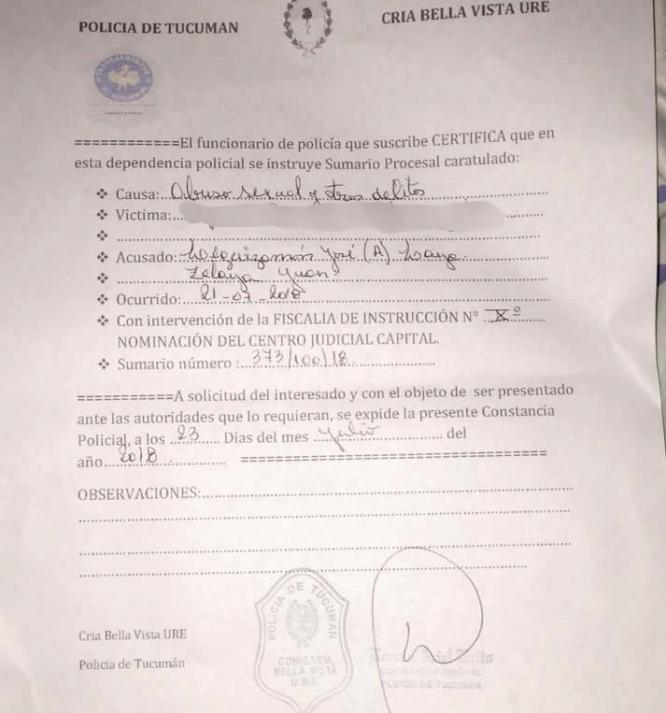 POLICIA DE TUCUMAN
CRIA BELLA VISTA URE
============El funcionario de policía que suscribe CERTIFICA que en
esta dependencia policial se instruye Sumario Procesal caratulado:
❖ Causa: Abuso sexual y otros delitos
❖ Victima:
❖
❖ Acusado: José (A)
❖ Zelaya Juan
❖ Ocurrido: 21-07-2018
❖ Con intervención de la FISCALIA DE INSTRUCCIÓN N° Xº
NOMINACIÓN DEL CENTRO JUDICIAL CAPITAL.
❖ Sumario número : 373/100/18
===========A solicitud del interesado y con el objeto de ser presentado
ante las autoridades que lo requieran, se expide la presente Constancia
Policial, a los 23 Días del mes Julio del
año 2018 ==================================
OBSERVACIONES:
POLICIA DE TUCUMAN
COMISARIA
BELLA VISTA
U.R.E.
Cria Bella Vista URE
Policia de Tucumán
POLICIA DE TUCUMAN